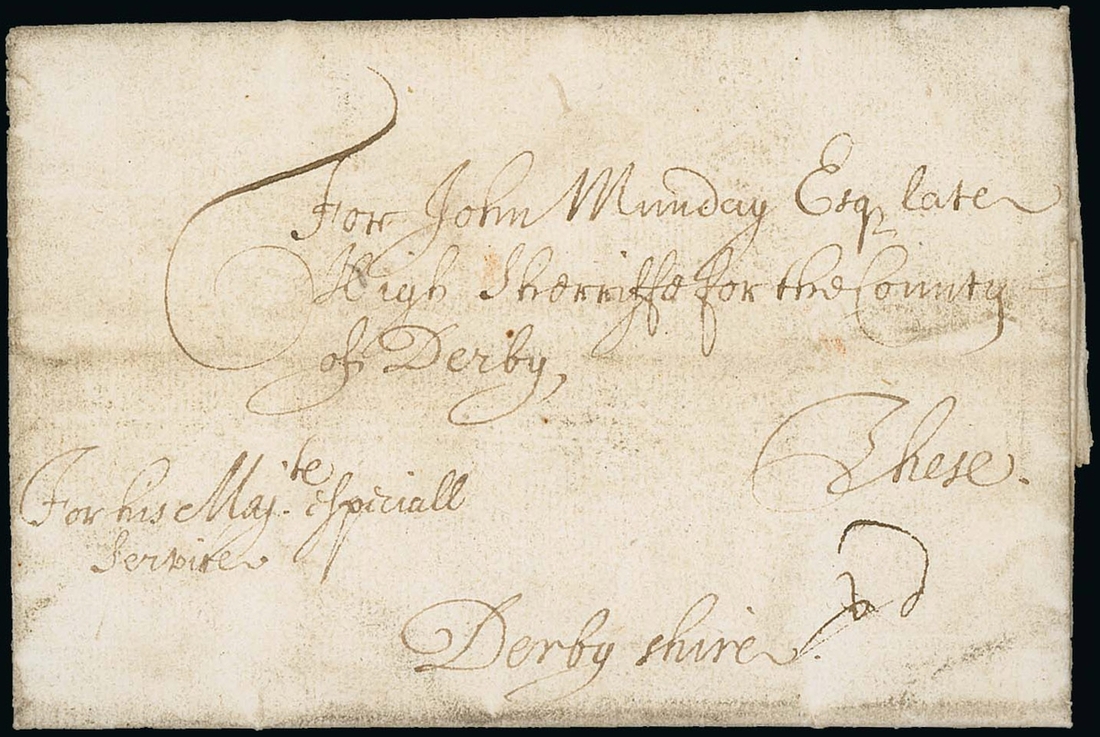 For John Munday Esq late
High Sherriffe for the County
of Derby,
These.
For his Maj.te Speciall
Service
Derby shire.